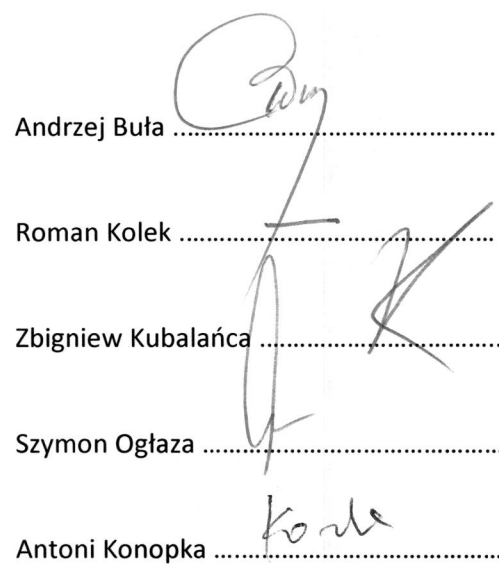 Andrzej Buła ..........................................
Roman Kolek ........................................
Zbigniew Kubalańca ................................
Szymon Ogłaza ......................................
Antoni Konopka .....................................